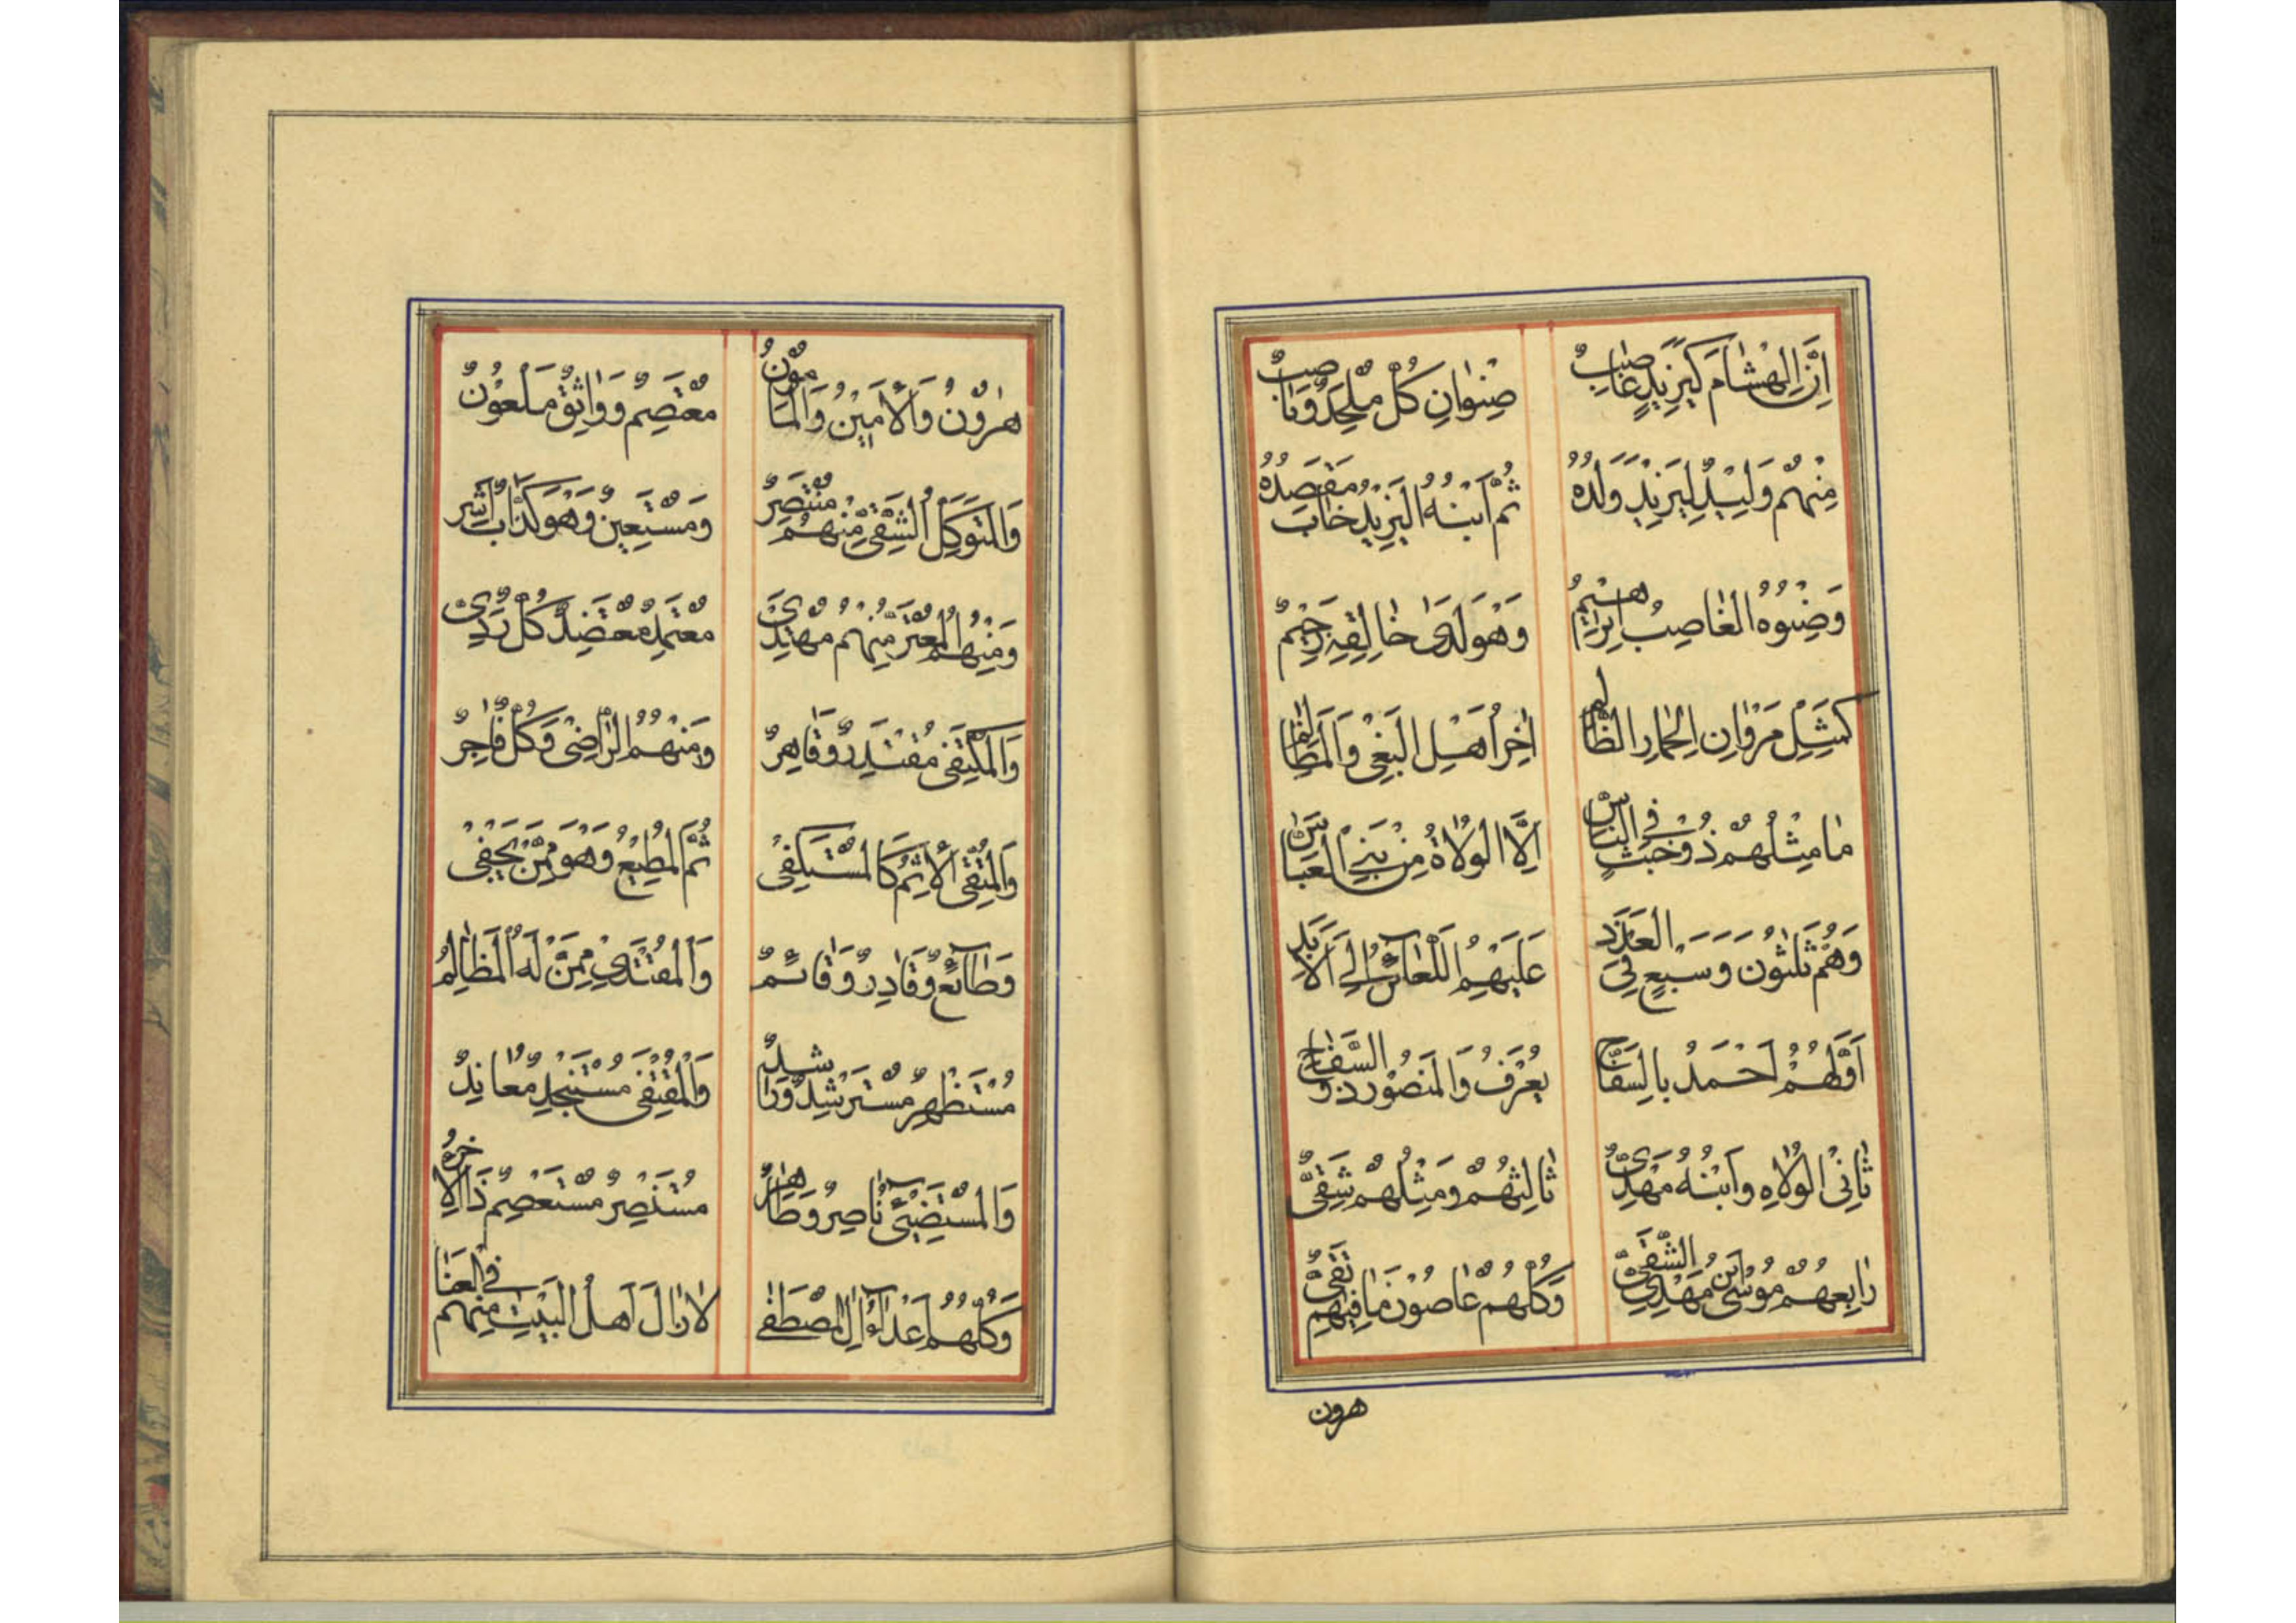 اِنَّ الْهِشَامَ كَيَزِيدٍ غَاصِبٌ صِنْوَانِ كُلٌّ مُلْحِدٌ وَنَاصِبٌ
مِنْهُمْ وَلِيْدٌ لِيَزِيْدٍ وَلَدُهُ ثُمَّ ابْنُهُ الْيَزِيْدُ خَابَ مَقْصَدُهُ
وَصِنْوُهُ الْغَاصِبُ اِبْرَاهِيْمُ وَهْوَ لَدَى خَالِقِهِ رَجِيْمٌ
كَمِثْلِ مَرْوَانِ الْحِمَارِ الظَّالِمِ اٰخِرُ اَهْلِ الْبَغْيِ وَالْمَظَالِمِ
مَا مِثْلُهُمْ ذُو خُبْثٍ فِي النَّاسِ اِلَّا الْوُلَاةُ مِنْ بَنِي الْعَبَّاسِ
وَهُمْ ثَلٰثُونَ وَسَبْعٍ فِي الْعَدَدِ عَلَيْهِمُ اللَّعَائِنُ اِلَى الْاَبَدِ
اَوَّلُهُمْ اَحْمَدُ بِالسَّفَّاحِ يُعْرَفُ وَالْمَنْصُوْرُ ذُو السِّفَاحِ
ثَانِي الْوُلَاهِ وَابْنُهُ مَهْدِىٌّ ثَالِثُهُمْ وَمِثْلُهُمْ شَقِىٌّ
رَابِعُهُمْ مُوْسَى ابْنُ مَهْدِىِّ الشَّقِىِّ وَكُلُّهُمْ عَاصُوْنَ مَا فِيْهِمْ تَقِىٌّ
هرون
هٰرُوْنُ وَالْاَمِيْنُ وَالْمَامُوْنُ مُعْتَصِمٌ وَوَاثِقٌ مَلْعُوْنٌ
وَالْمُتَوَكِّلُ الشَّقِى مِنْهُمْ مُنْتَصِرٌ وَمُسْتَعِيْنٌ وَهْوَ كَذَّابٌ اَشِر
وَمِنْهُمُ الْمُعْتَزُّ مِنْهُمْ مُهْتَدِىٌ مُعْتَمِدٌ مُعْتَضِدٌ كُلٌّ رَدِىٌّ
وَالْمُكْتَفِى مُقْتَدِرٌ وَقَاهِرٌ وَمِنْهُمُ الرَّاضِى وَكُلٌّ فَاجِرٌ
وَالْمُتَّقِى الْاٰثِمُ كَالْمُسْتَكْفِىْ ثُمَّ الْمُطِيْعُ وَهْوَ مِمَّنْ يَجْفِىْ
وَطَائِعٌ وَقَادِرٌ وَقَائِمٌ وَالْمُقْتَدِي مِمَّنْ لَهُ الْمَظَالِمُ
مُسْتَظْهِرٌ مُسْتَرْشِدٌ وَرَاشِدٌ وَالْمُقْتَفِى مُسْتَنْجِدٌ مُعَانِدٌ
وَالْمُسْتَضِيْئُ نَاصِرٌ وَظَاهِرٌ مُسْتَنْصِرٌ مُسْتَعْصِمٌ ذَا الْاٰخِرُ
وَكُلُّهُمْ اَعْدَاءُ اٰلِ الْمُصْطَفٰى لَا زَالَ اَهْلُ الْبَيْتِ مِنْهُمْ فِي الْعَنَا